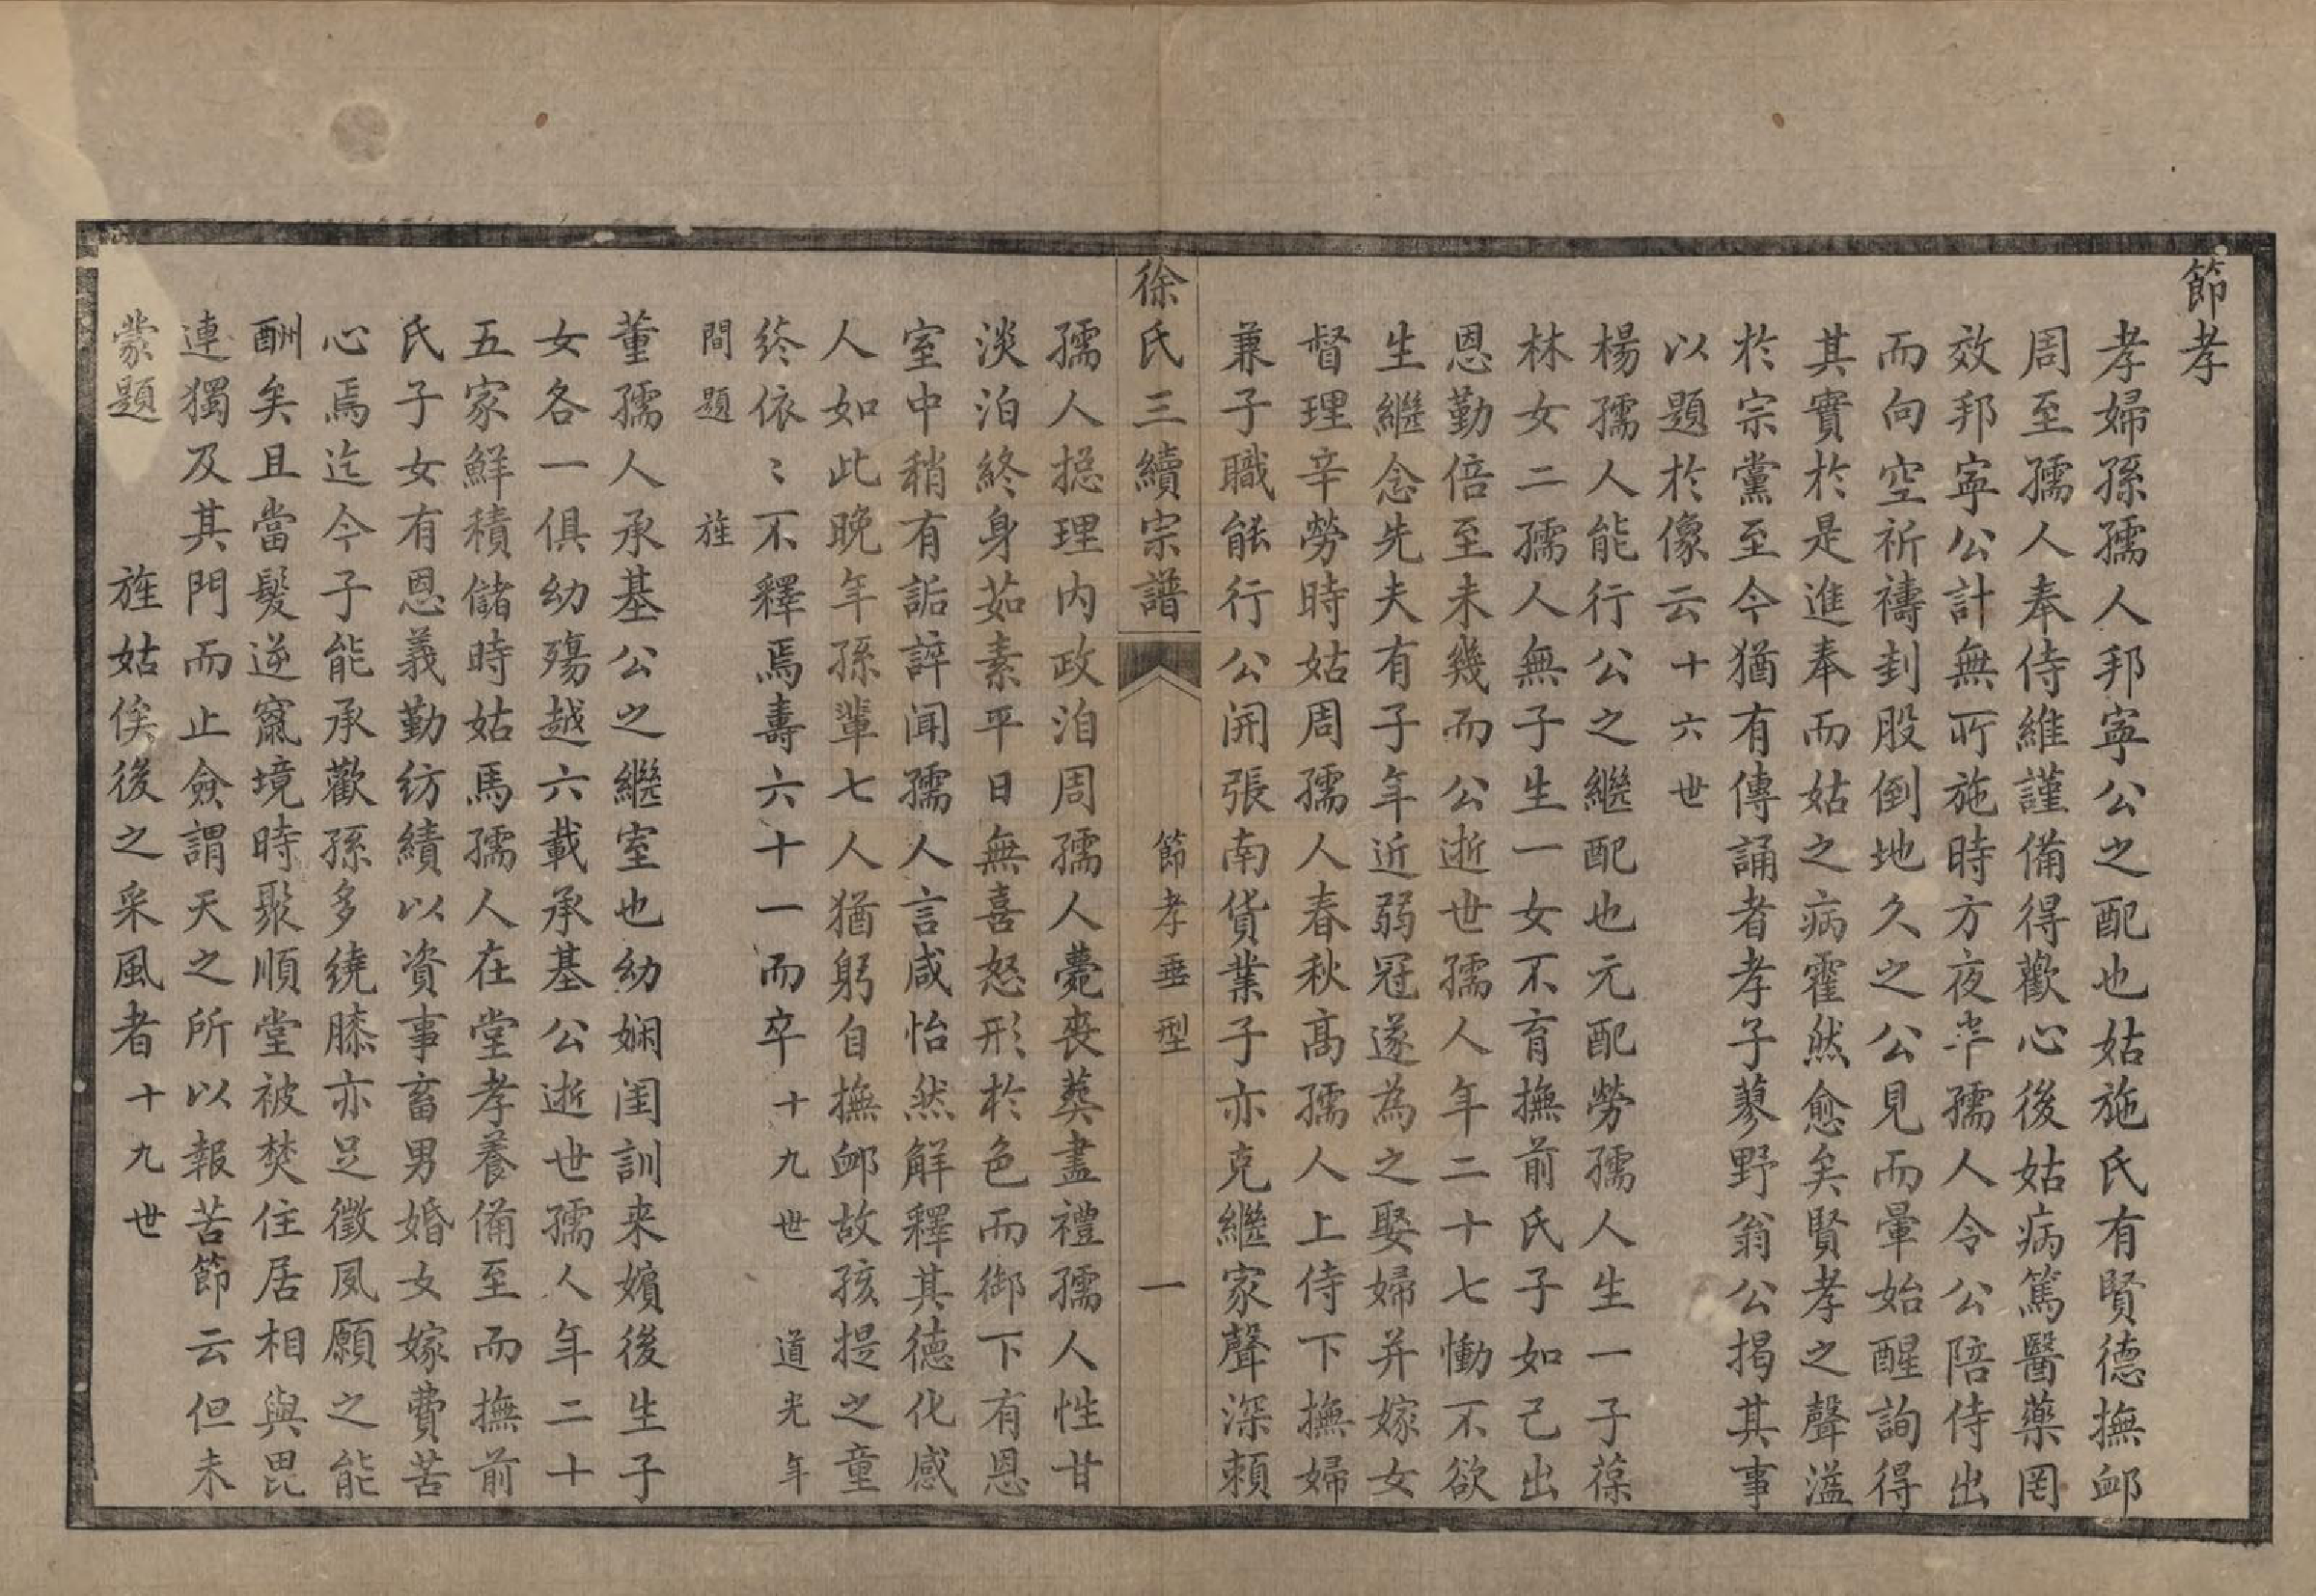 節孝
孝婦孫孺人邦寧公之配也姑施氏有賢德撫卹
周至孺人奉侍維謹備得歡心後姑病篤醫藥罔
效邦寧公計無所施時方夜半孺人令公陪侍出
而向空祈禱刲股倒地久之公見而暈始醒詢得
其實於是進奉而姑之病霍然愈矣賢孝之聲溢
於宗黨至今猶有傳誦者孝子蓼野翁公揭其事
以題於像云十六世
楊孺人能行公之繼配也元配勞孺人生一子葆
林女二孺人無子生一女不育撫前氏子如己出
恩勤倍至未幾而公逝世孺人年二十七慟不欲
生繼念先夫有子年近弱冠遂為之娶婦并嫁女
督理辛勞時姑周孺人春秋高孺人上侍下撫婦
兼子職能行公開張南貨業子亦克繼家聲深賴
徐氏三續宗譜 節孝垂型 一
孺人摠理內政洎周孺人薨喪葬盡禮孺人性甘
淡泊終身茹素平日無喜怒形於色而御下有恩
室中稍有詬誶闻孺人言咸怡然解釋其德化感
人如此晚年孫輩七人猶躬自撫卹故孩提之童
終依〻不釋焉壽六十一而卒十九世 道光年
間題 旌
董孺人承基公之繼室也幼嫻閨訓来嬪後生子
女各一俱幼殤越六載承基公逝世孺人年二十
五家鮮積儲時姑馬孺人在堂孝養備至而撫前
氏子女有恩義勤紡績以資事畜男婚女嫁費苦
心焉迄今子能承歡孫多繞膝亦足徵夙願之能
酬矣且當髮逆竄境時聚順堂被焚住居相與毘
連獨及其門而止僉謂天之所以報苦節云但未
蒙題 旌姑俟後之采風者十九世